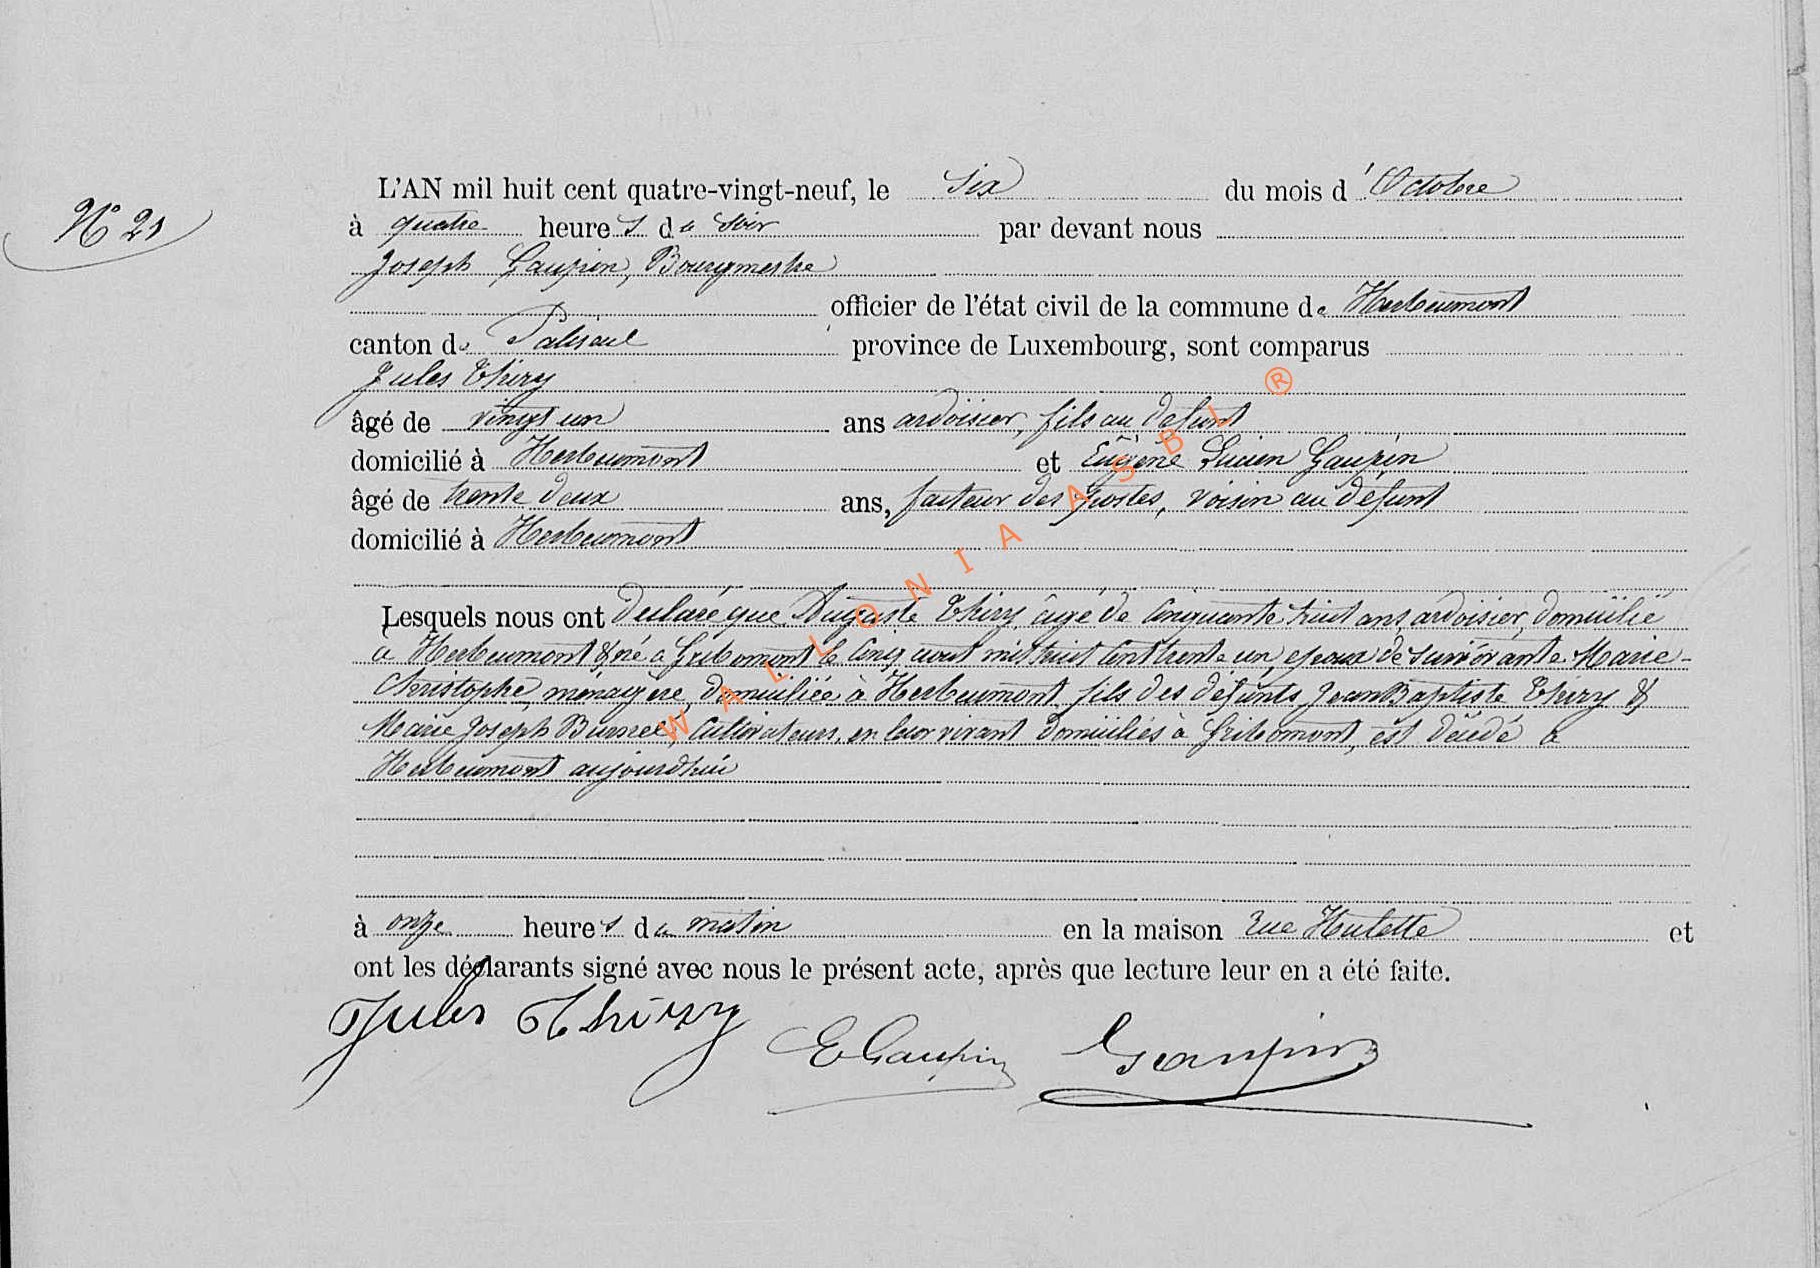 L'AN mil huit cent quatre-vingt-neuf, le Six du mois d'Octobre
N° 21
à quatre heures du Soir par devant nous
Joseph Gaupin, Bourgmestre
officier de l'état civil de la commune de Herbeumont
canton de Paliseul province de Luxembourg, sont comparus
Jules Thiry
âgé de vingt un ans ardoisier, fils au défunt
domicilié à Herbeumont et Eugène Lucien Gaupin
âgé de trente deux ans, facteur des postes, voisin au défunt
domicilié à Herbeumont
Lesquels nous ont déclaré que Auguste Thiry âgé de cinquante huit ans, ardoisier, domicilié
à Herbeumont & né à Gribomont le cinq aout mil huit cent trente un, époux de survivante Marie-
Christophe, ménagère, domiciliée à Herbeumont, fils des défunts Jean Baptiste Thiry &
Marie Joseph cultivateurs, en leur vivant domiciliés à Gribomont, est décédé à
Herbeumont aujourd'hui
à onze heures du matin en la maison rue Hulette et
ont les déclarants signé avec nous le présent acte, après que lecture leur en a été faite.
Jules Thiry EGaupin Gaupin
WALLONIA ASBL ®